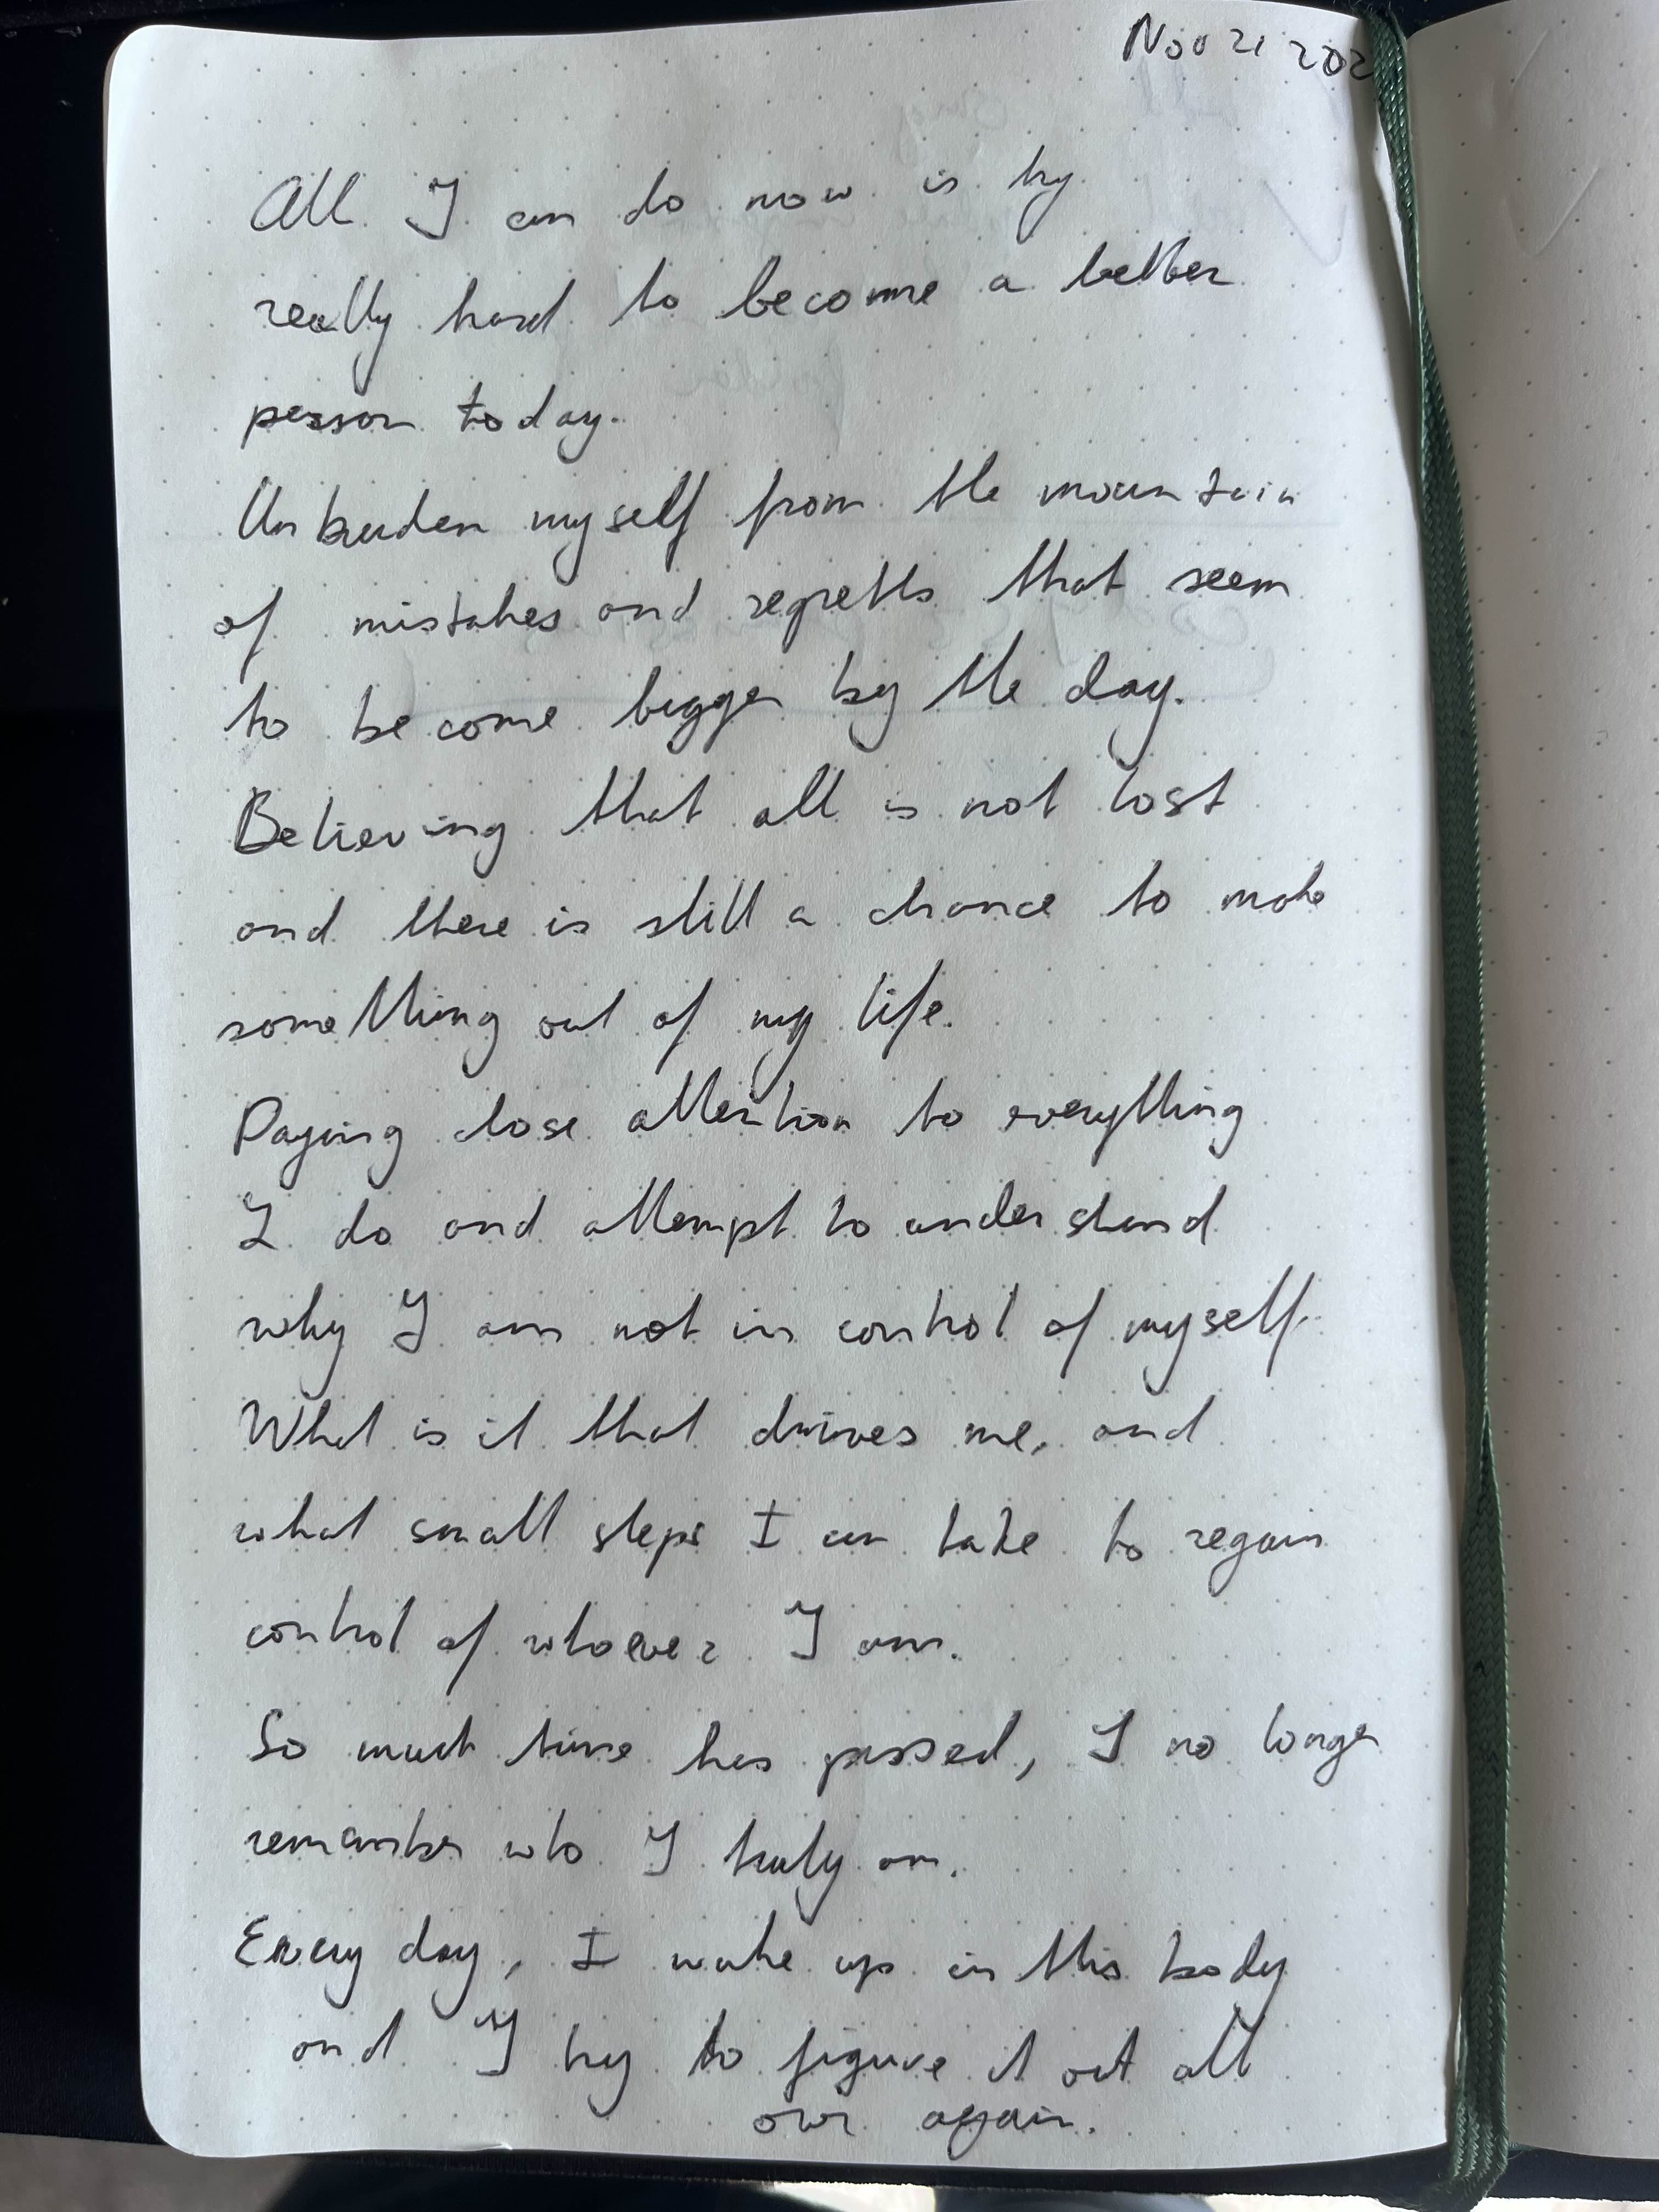 Nov 21 202
All I can do now is try
really hard to become a better
person today.
Unburden myself from the mountain
of mistakes and regretts that seem
to become bigger by the day.
Believing that all is not lost
and there is still a chance to make
something out of my life.
Paying close attention to everything
I do and attempt to understand
why I am not in control of myself.
What is it that drives me, and
what small steps I can take to regain
control of whoever I am.
So much time has passed, I no longer
remember who I truly am.
Every day, I wake up in this body
and I try to figure it out all
over again.